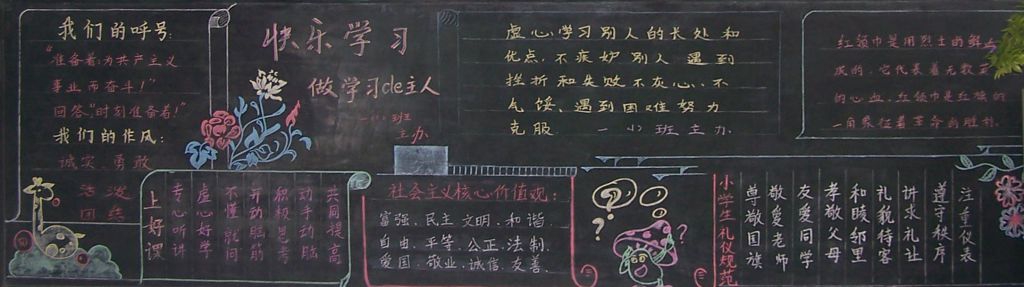 我们的呼号:
“准备着:为共产主义
事业而奋斗!”
回答:“时刻准备着!”
我们的作风:
诚实 勇敢
活泼
团结
快乐学习
做学习de主人
一(1)班
主办
虚心学习别人的长处和
优点,不疾妒别人 遇到
挫折和失败不灰心、不
气馁、遇到困难努力
克服 一(1)班主办
红领巾是用烈士的鲜
成的,它代表着无数
的心血,红领巾是红旗的
一角象征着革命的胜利.
上好课
专心听讲
虚心好学
不懂就问
开动脑筋
积极思考
动手动脑
共同提高
社会主义核心价值观:
富强、民主、文明、和谐、
自由、平等、公正、法制、
爱国、敬业、诚信、友善、
小学生礼仪规范
尊敬国旗
敬爱老师
友爱同学
孝敬父母
和睦邻里
礼貌待客
讲求礼让
遵守秩序
注重仪表